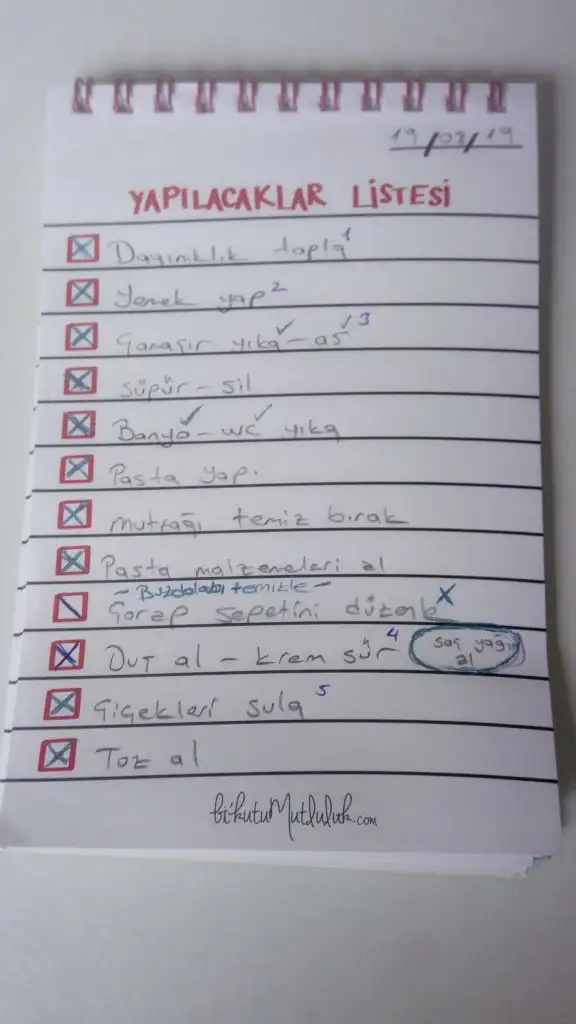 19/03/19
YAPILACAKLAR LİSTESİ
Dağınıklık topla 1
Yemek yap 2
Çamaşır yıka ✓ - as ✓ 3
Süpür - sil
Banyo ✓ - wc ✓ yıka
Pasta yap.
mutfağı temiz bırak
Pasta malzemeleri al
- Buzdolabı temizle -
Çorap sepetini düzenle X
Duş al - krem sür 4
saç yağı al
Çiçekleri sula 5
Toz al
bi'kutuMutluluk.com